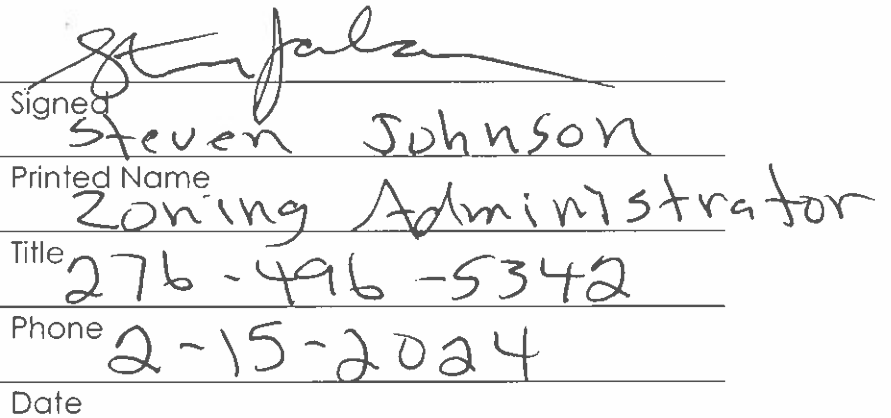 Signed
Steven Johnson
Printed Name
Zoning Administrator
Title
276-496-5342
Phone
2-15-2024
Date